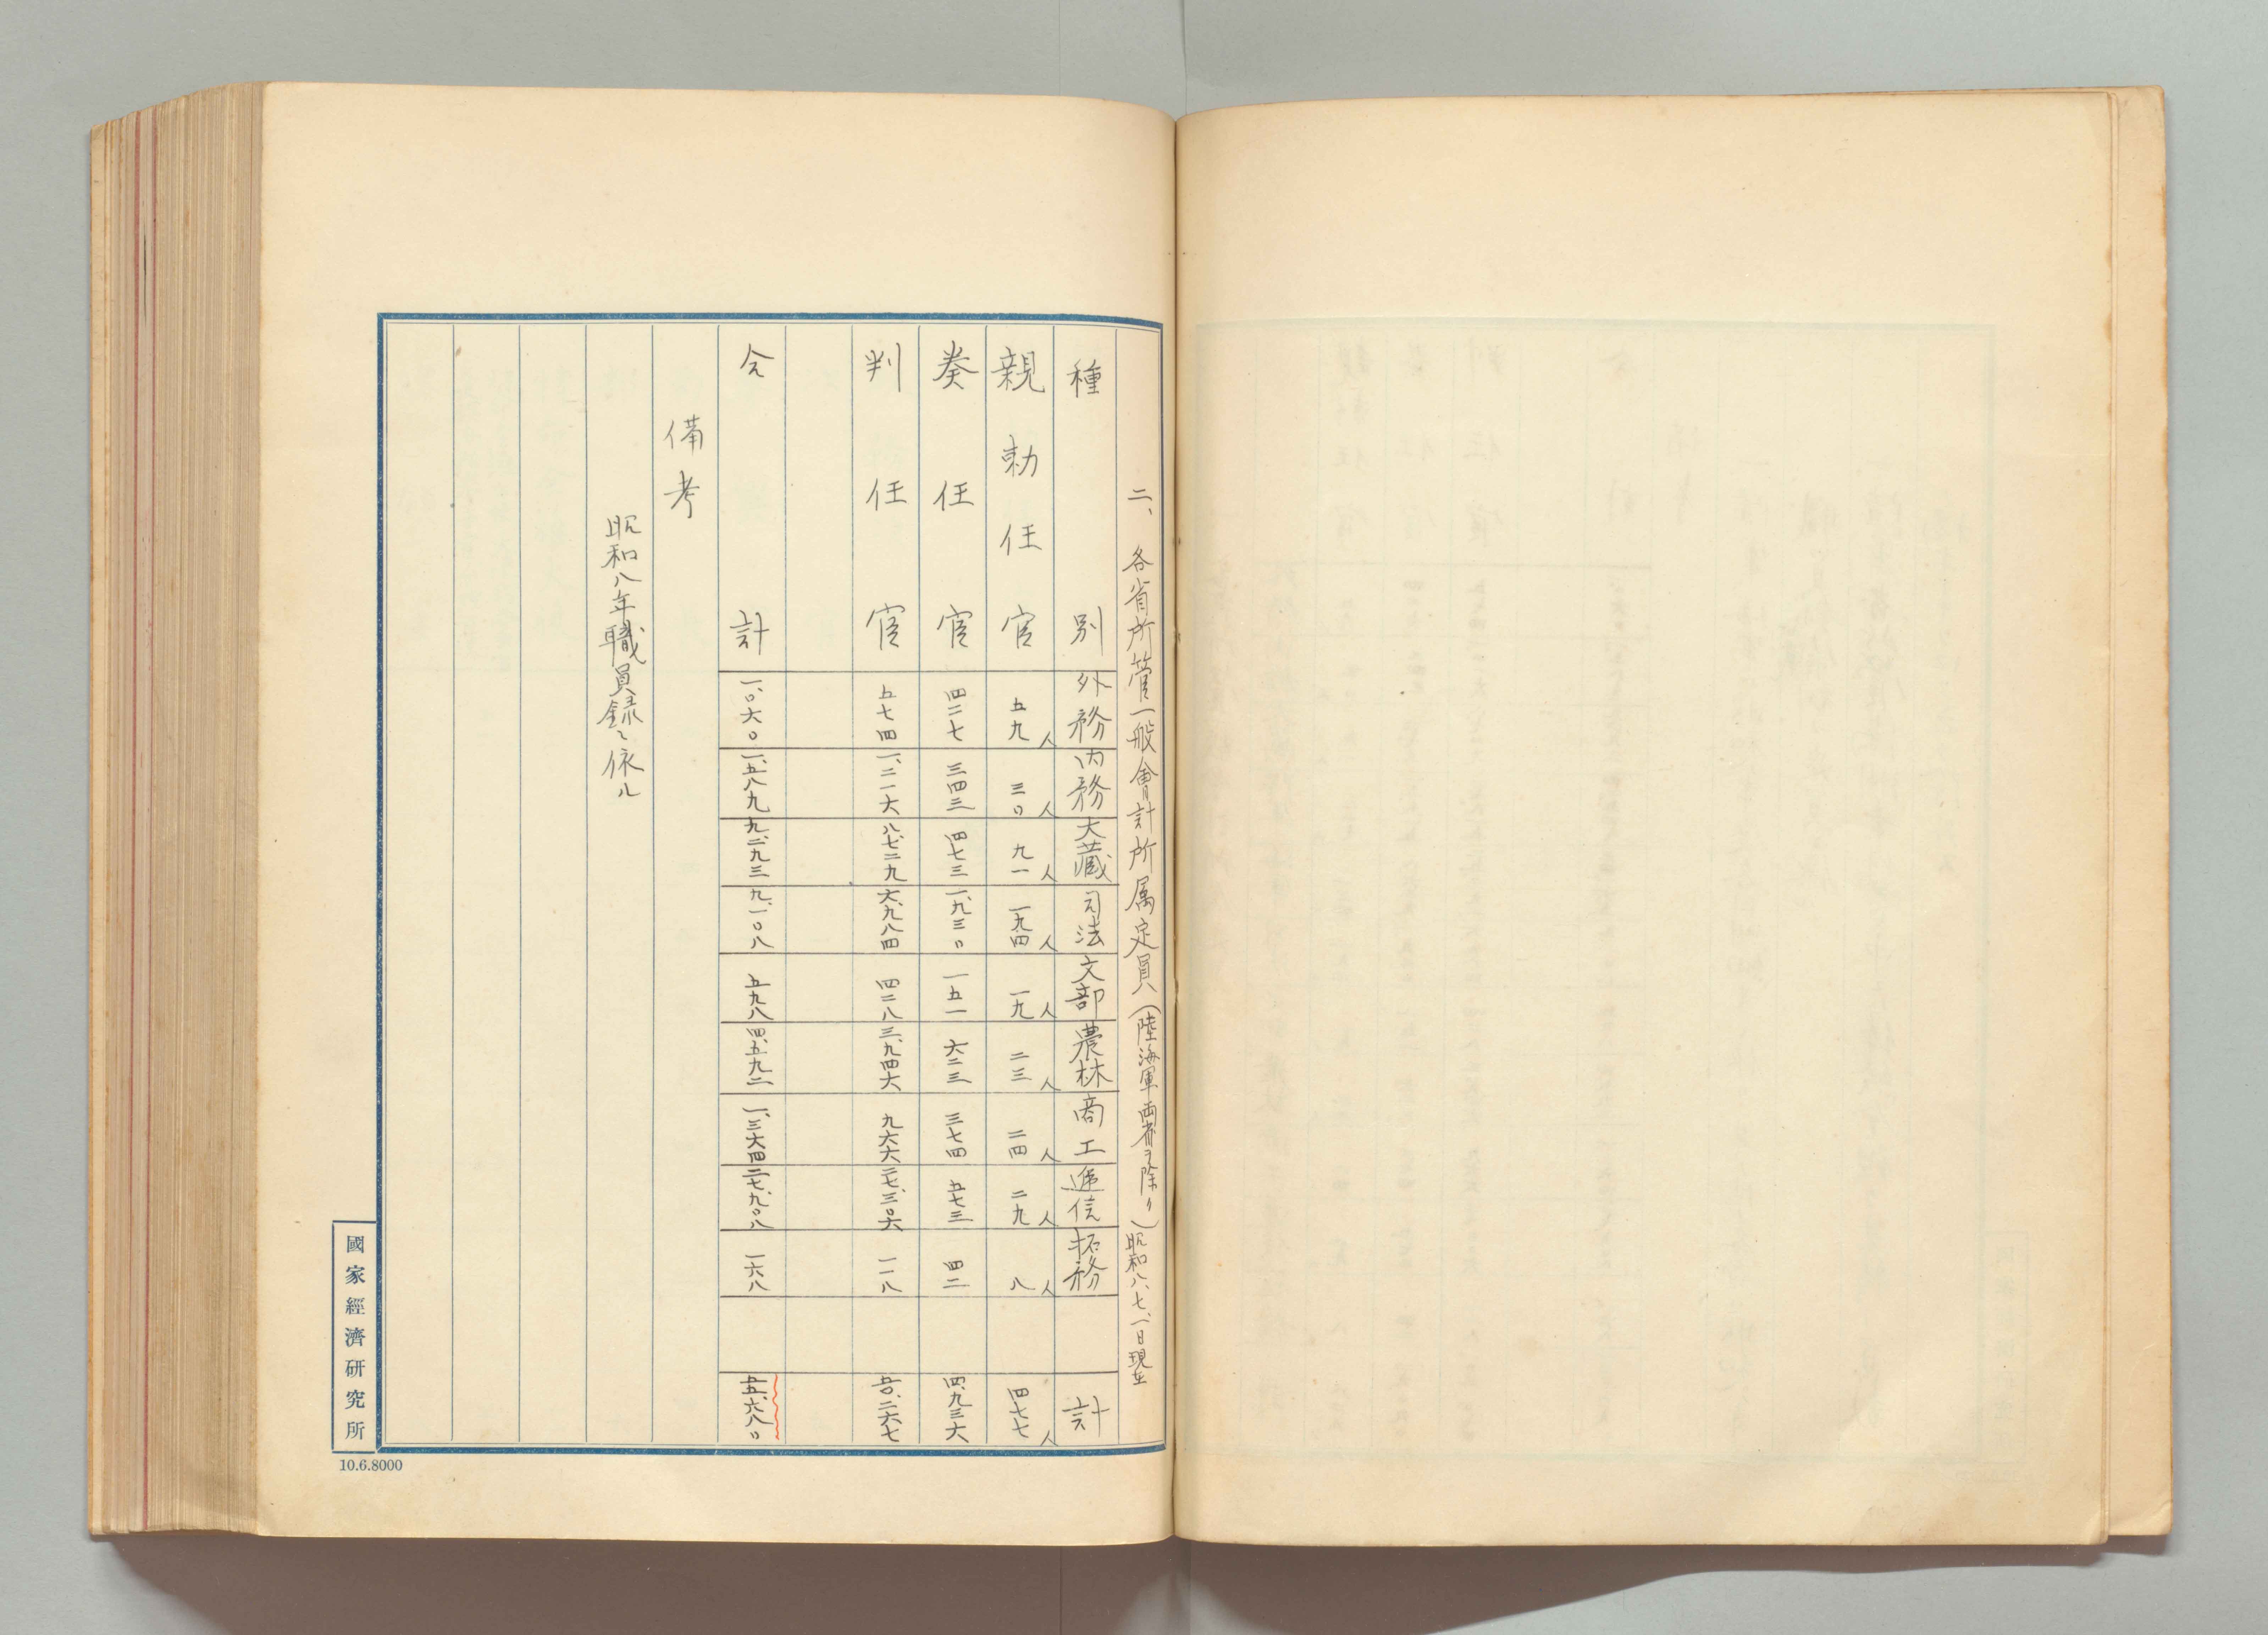 二、各省所管一般會計所属定員(陸海軍両省ヲ除ク)昭和八、七、一日現在
種別 外務 内務 大蔵 司法 文部 農林 商工 逓信 拓務 計
親勅任官 五九人 三〇人 九一人 一九四人 一九人 二三人 二四人 二九人 八人 四七七人
奏任官 四二七 三四三 四七三 一、九三〇 一五一 六二三 三七四 五七三 四二 四、九三六
判任官 五七四 一、二一六 八、七二九 六、九八四 四二八 三、九四六 九六六 二七、三〇六 一一八 五〇、二六七
合計 一、〇六〇 一、五八九 九、二九三 九、一〇八 五九八 四、五九二 一、三六四 二七、九〇八 一六八 五五、六八〇
備考
昭和八年職員録ニ依ル
國家經濟研究所
10.6.8000